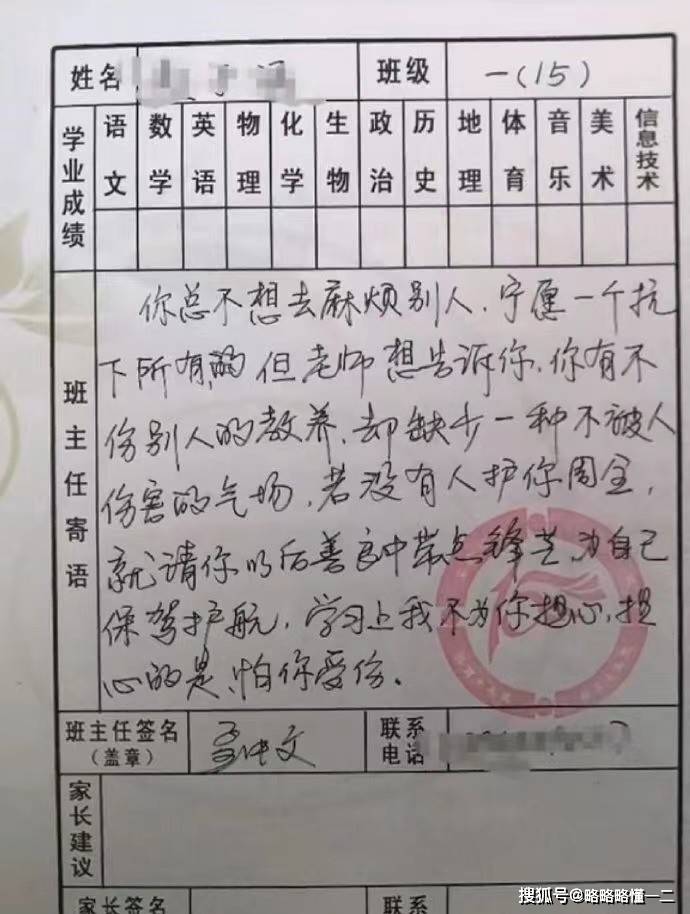 姓名 班级 一(15)
学业成绩 语文 数学 英语 物理 化学 生物 政治 历史 地理 体育 音乐 美术 信息技术
班主任寄语
你总不想去麻烦别人，宁愿一个抗
下所有的 但老师想告诉你，你有不
伤别人的教养，却缺少一种不被人
伤害的气场，若没有人护你周全，
就请你以后善良中带点锋芒，为自己
保驾护航，学习上我不为你担心，担
心的是，怕你受伤。
班主任签名
(盖章)
联系
电话
家长建议
家长签名 联系
搜狐号@略略略懂一二